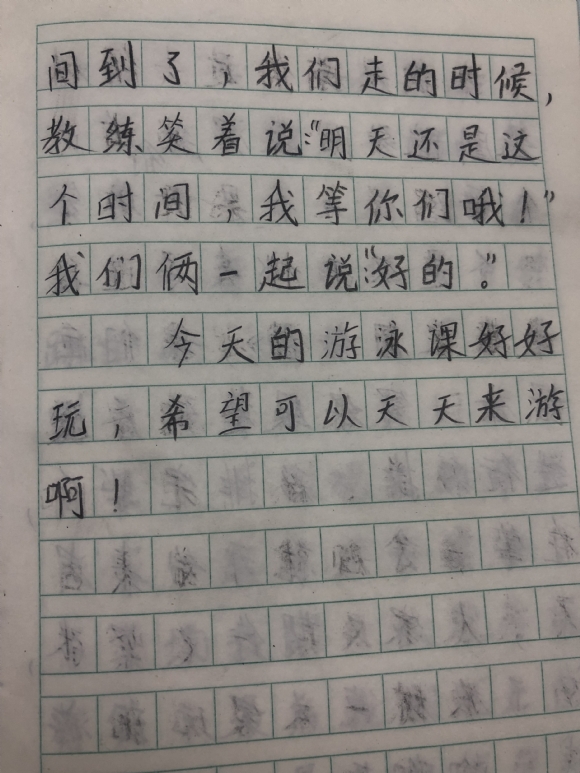 间到了，我们走的时候，
教练笑着说：“明天还是这
个时间，我等你们哦！”
我们俩一起说：“好的。”
今天的游泳课好好
玩，希望可以天天来游
啊！